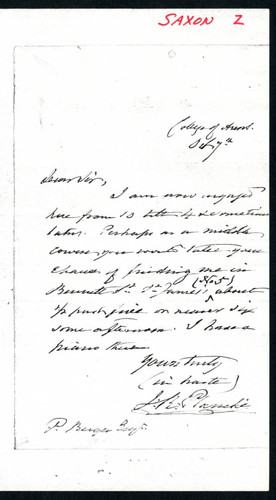 SAXON Z
College of Arms.
Dear Sir,
I am now engaged
here from 10 till 4 & sometimes
later. Perhaps as a middle
course you would take your
chance of finding me in
(No 5)
Bennett St. St. James's about
½ past five or nearer six
some afternoon. I have a
piano there
Yours truly
(in haste)
J. R. Planché
P. Berger Esqre.